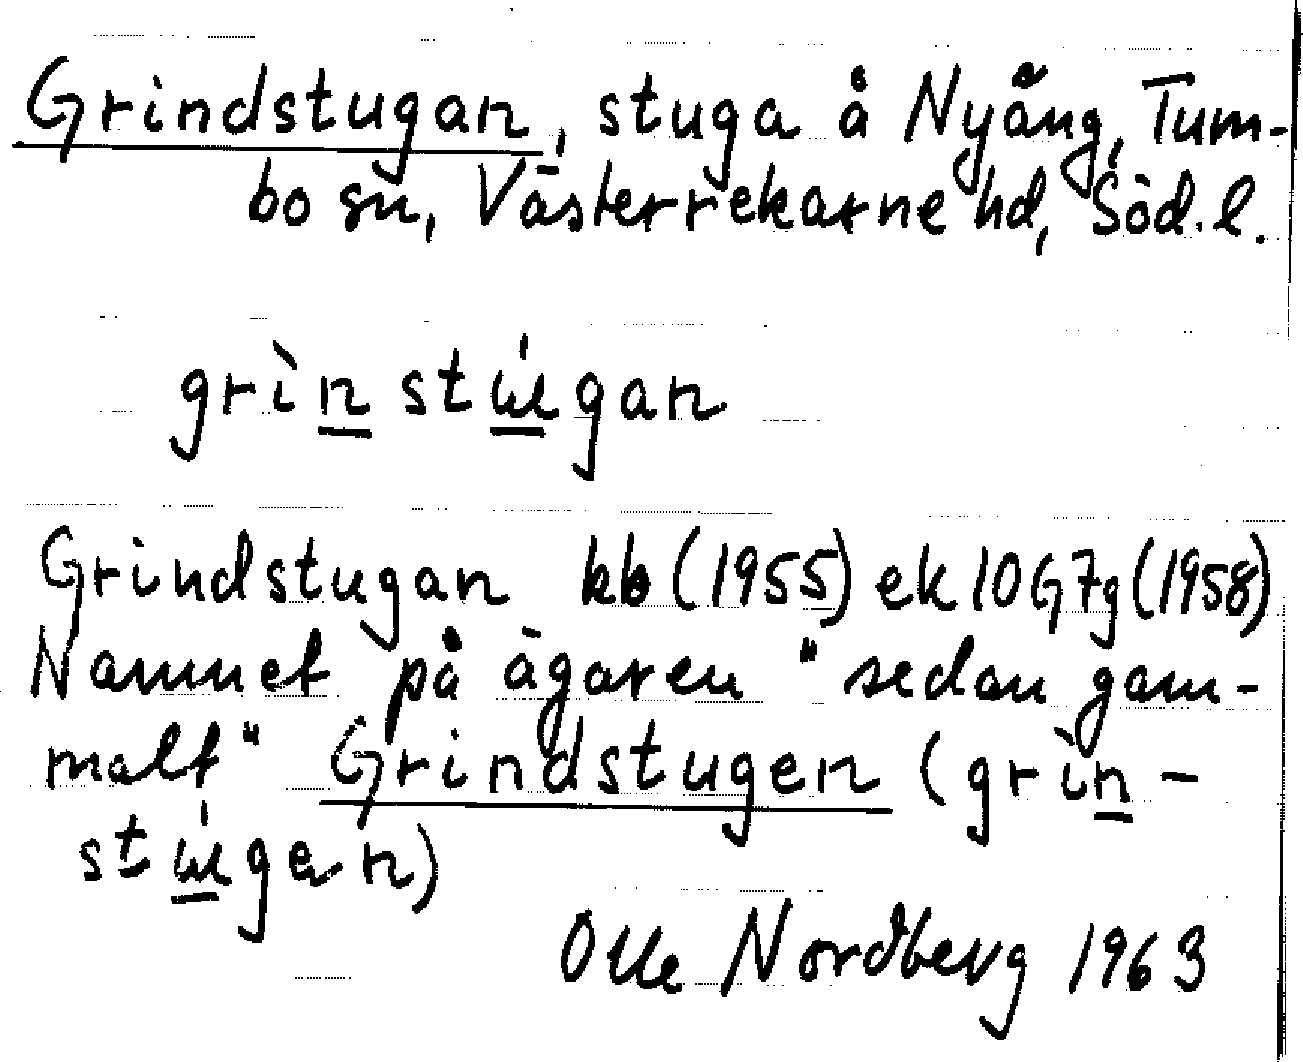 Grindstugan, stuga å Nyång, Tum-
bo sn, Västerrekarne hd, Söd. l.
grìn̲stú̲gan
Grindstugan kb (1955) ek 10G7g (1958)
Namnet på ägaren "sedan gam-
malt" Grindstugen (grìn̲-
stú̲gen)
Olle Nordberg 1963